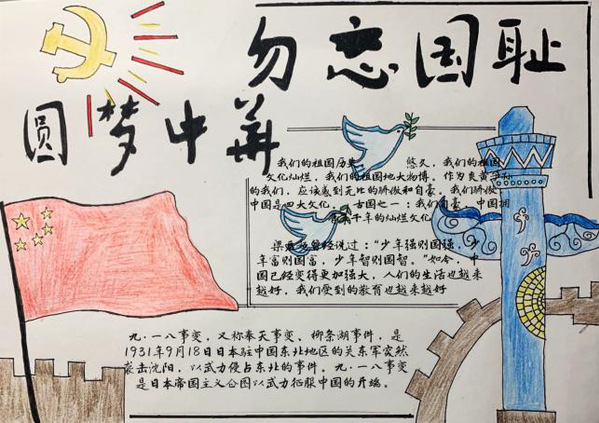 勿忘国耻
圆梦中华
我们的祖国历史 悠久，我们的祖国
文化灿烂，我们的祖国地大物博。作为炎黄子
的我们，应该感到无比的骄傲和自豪。我们骄傲，
中国是四大文化，古国之一；我们自豪，中国拥
千年的灿烂文化
梁 曾经说过：“少年强则国强，
年富则国富，少年智则国智。”如今，中
国已经变得更加强大，人们的生活也越来
越好，我们受到的教育也越来越好
九·一八事变，又称奉天事变、柳条湖事件，是
1931年9月18日日本驻中国东北地区的关东军突然
袭击沈阳，以武力侵占东北的事件。九·一八事变
是日本帝国主义企图以武力征服中国的开端。